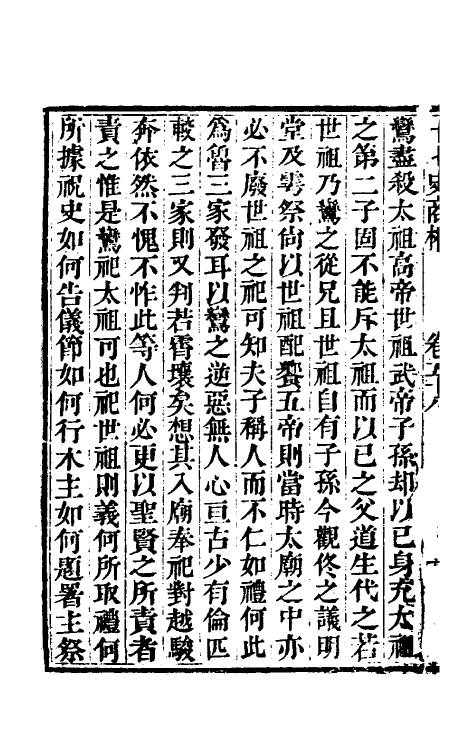 十七史商榷 卷五十八
鸞盡殺太祖高帝世祖武帝子孫却以已身充太祖
之第二子固不能斥太祖而以已之父道生代之若
世祖乃鸞之從兄且世祖自有子孫今觀佟之議明
堂及雩祭尙以世祖配饗五帝則當時太廟之中亦
必不廢世祖之祀可知夫子稱人而不仁如禮何此
爲魯三家發耳以鸞之逆惡無人心亘古少有倫匹
較之三家則又判若霄壤矣想其入廟奉祀對越駿
奔依然不愧不怍此等人何必更以聖賢之所責者
責之惟是鸞祀太祖可也祀世祖則義何所取禮何
所據祝史如何告儀節如何行木主如何題署主祭